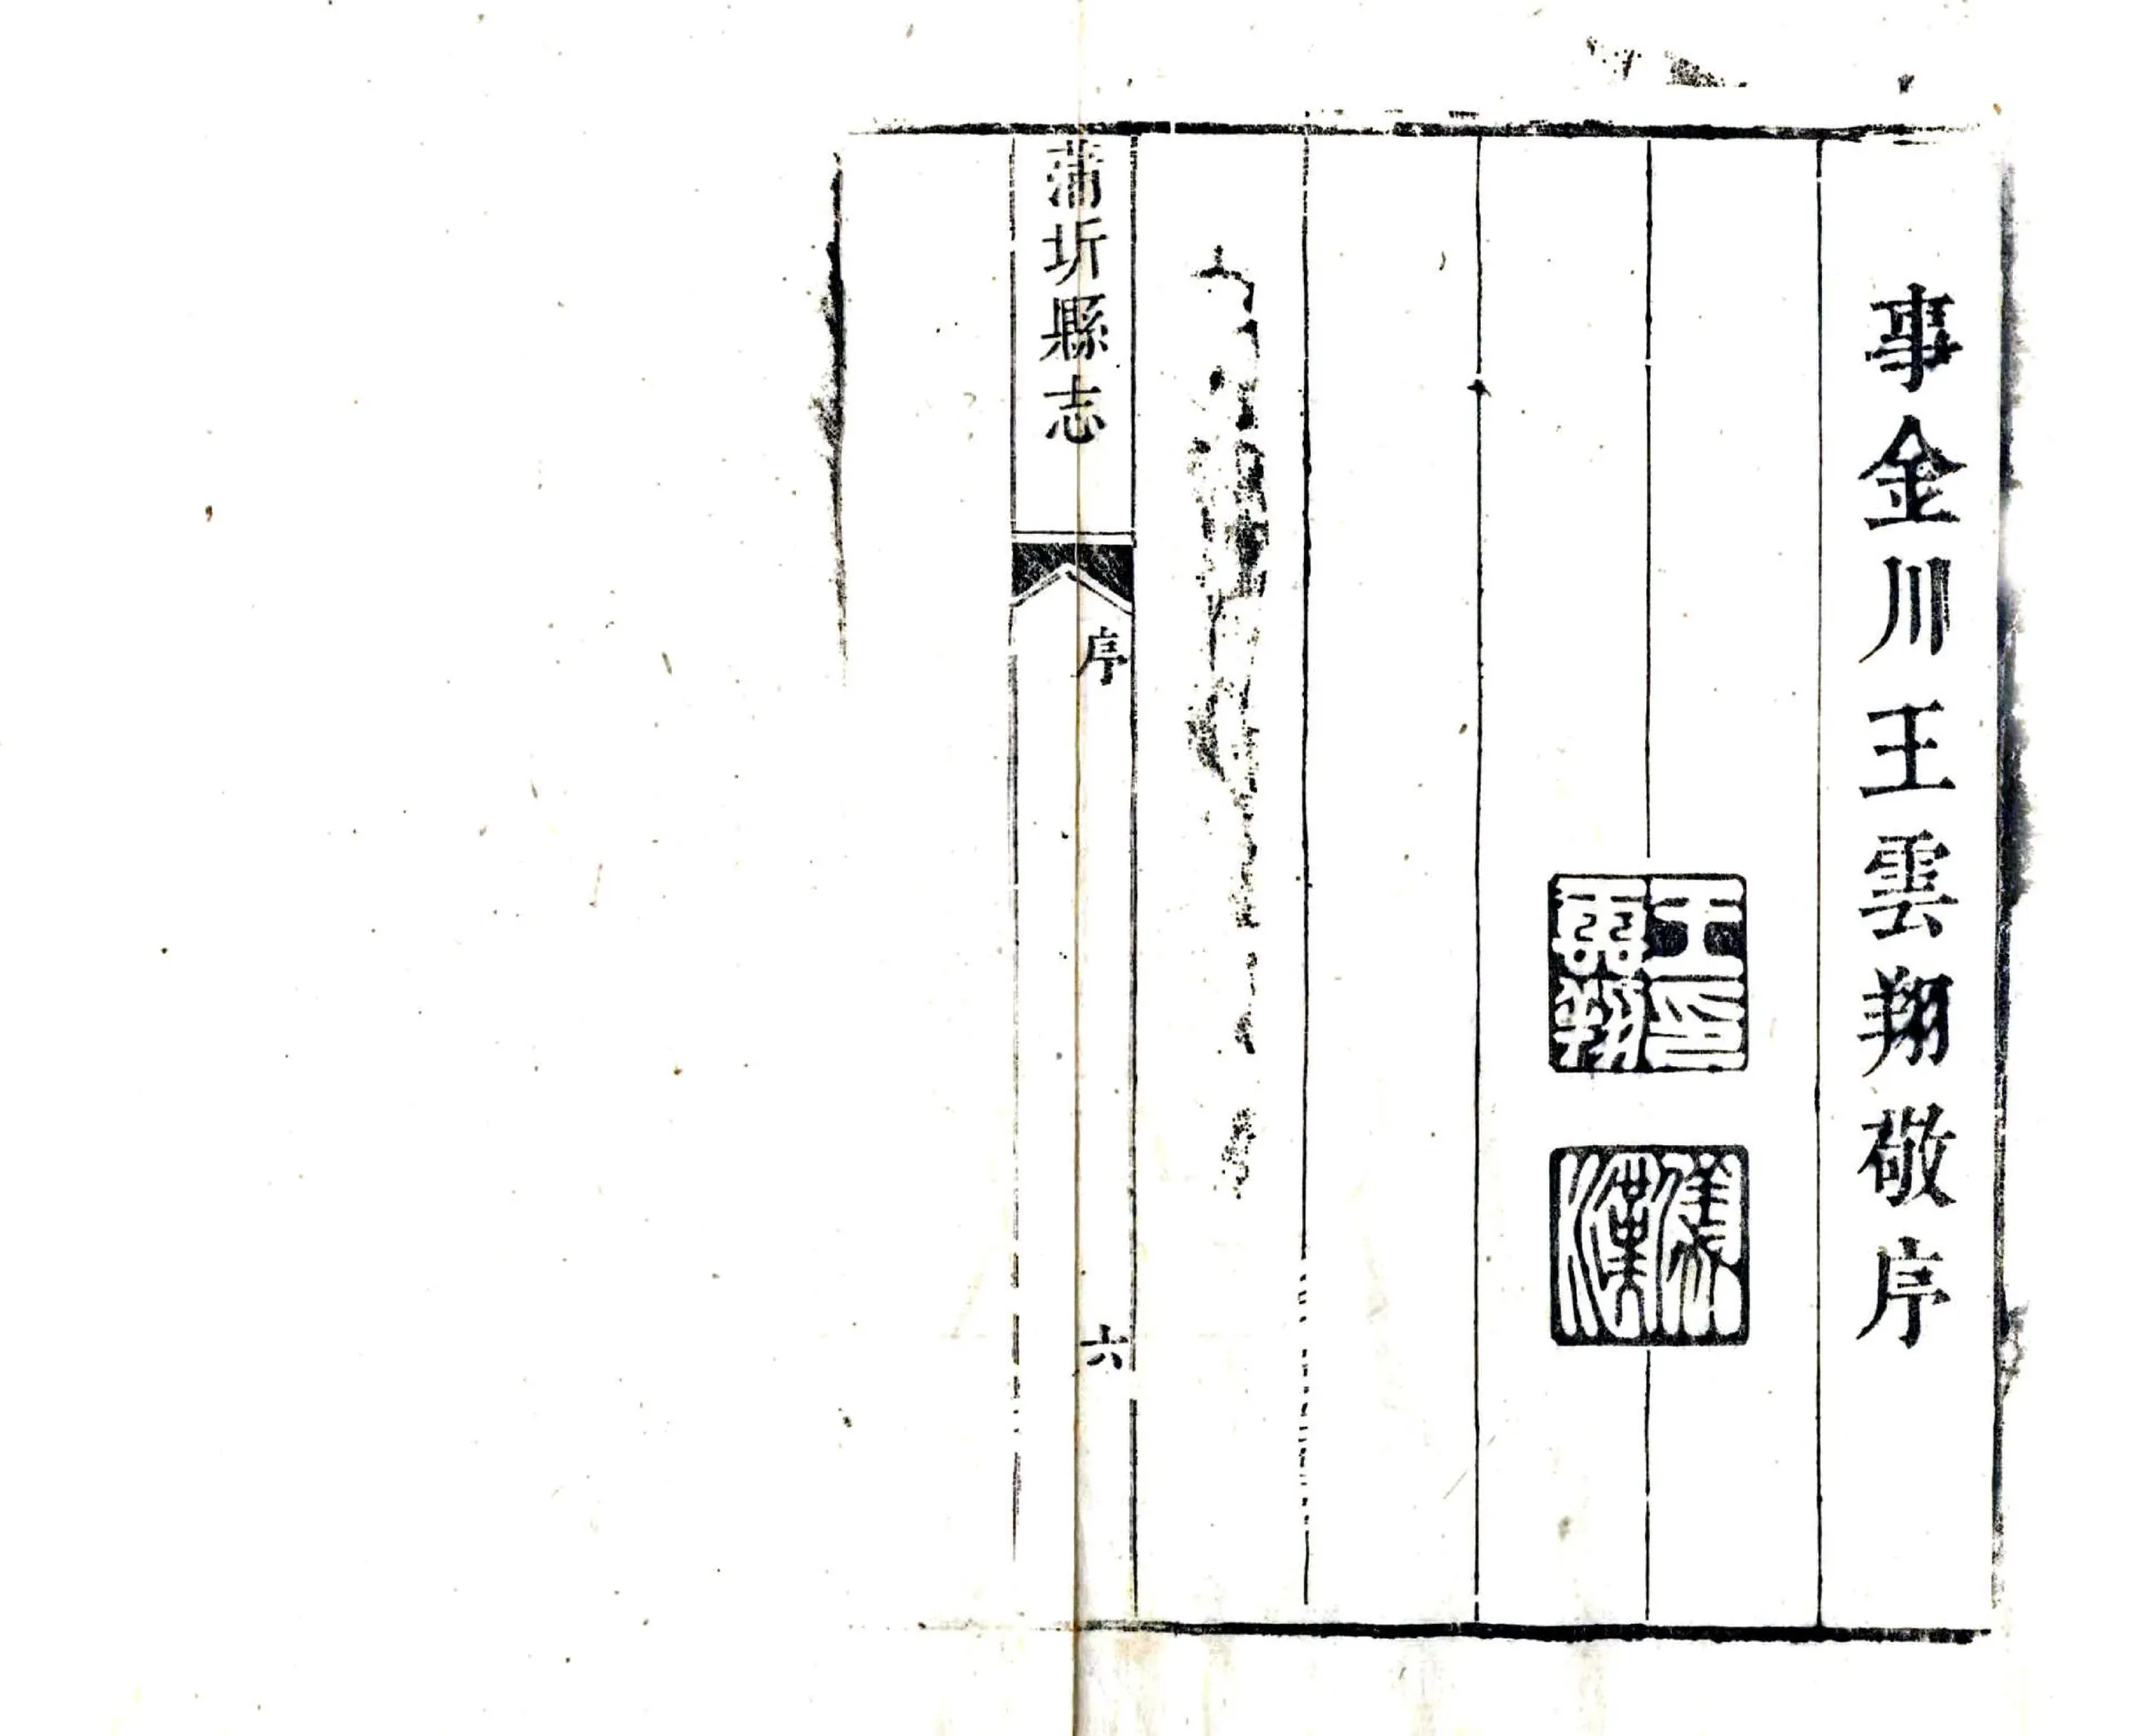 事金川王雲翔敬序
王印雲翔
儀漢
蒲圻縣志
序
六